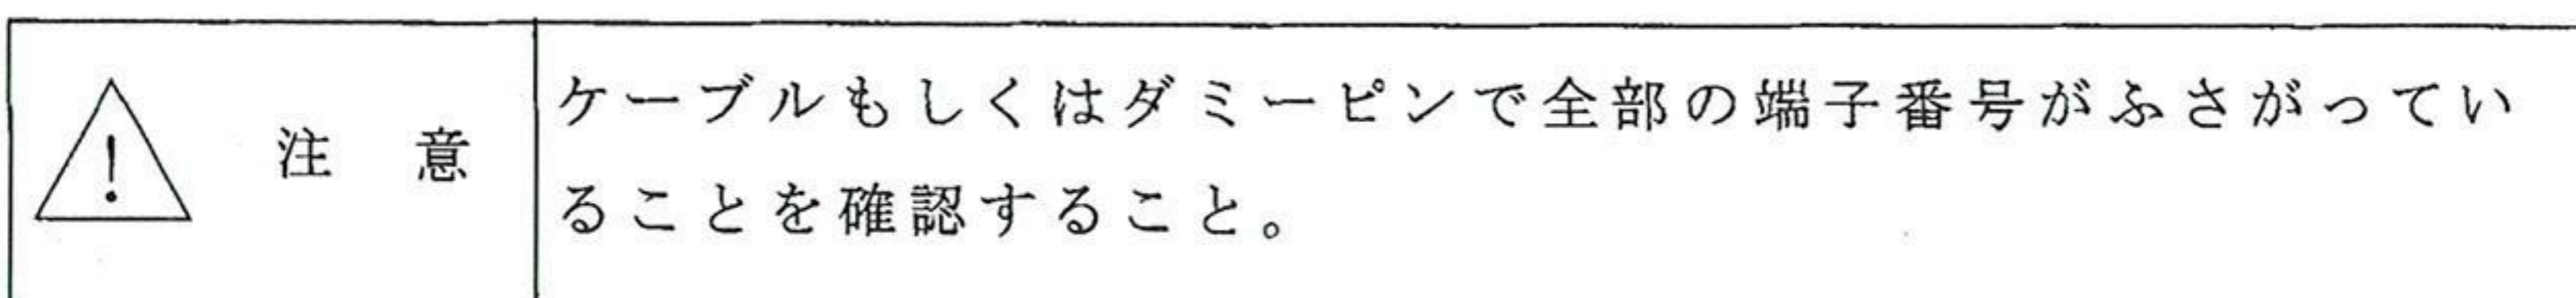 注意
ケーブルもしくはダミーピンで全部の端子番号がふさがってい
ることを確認すること。